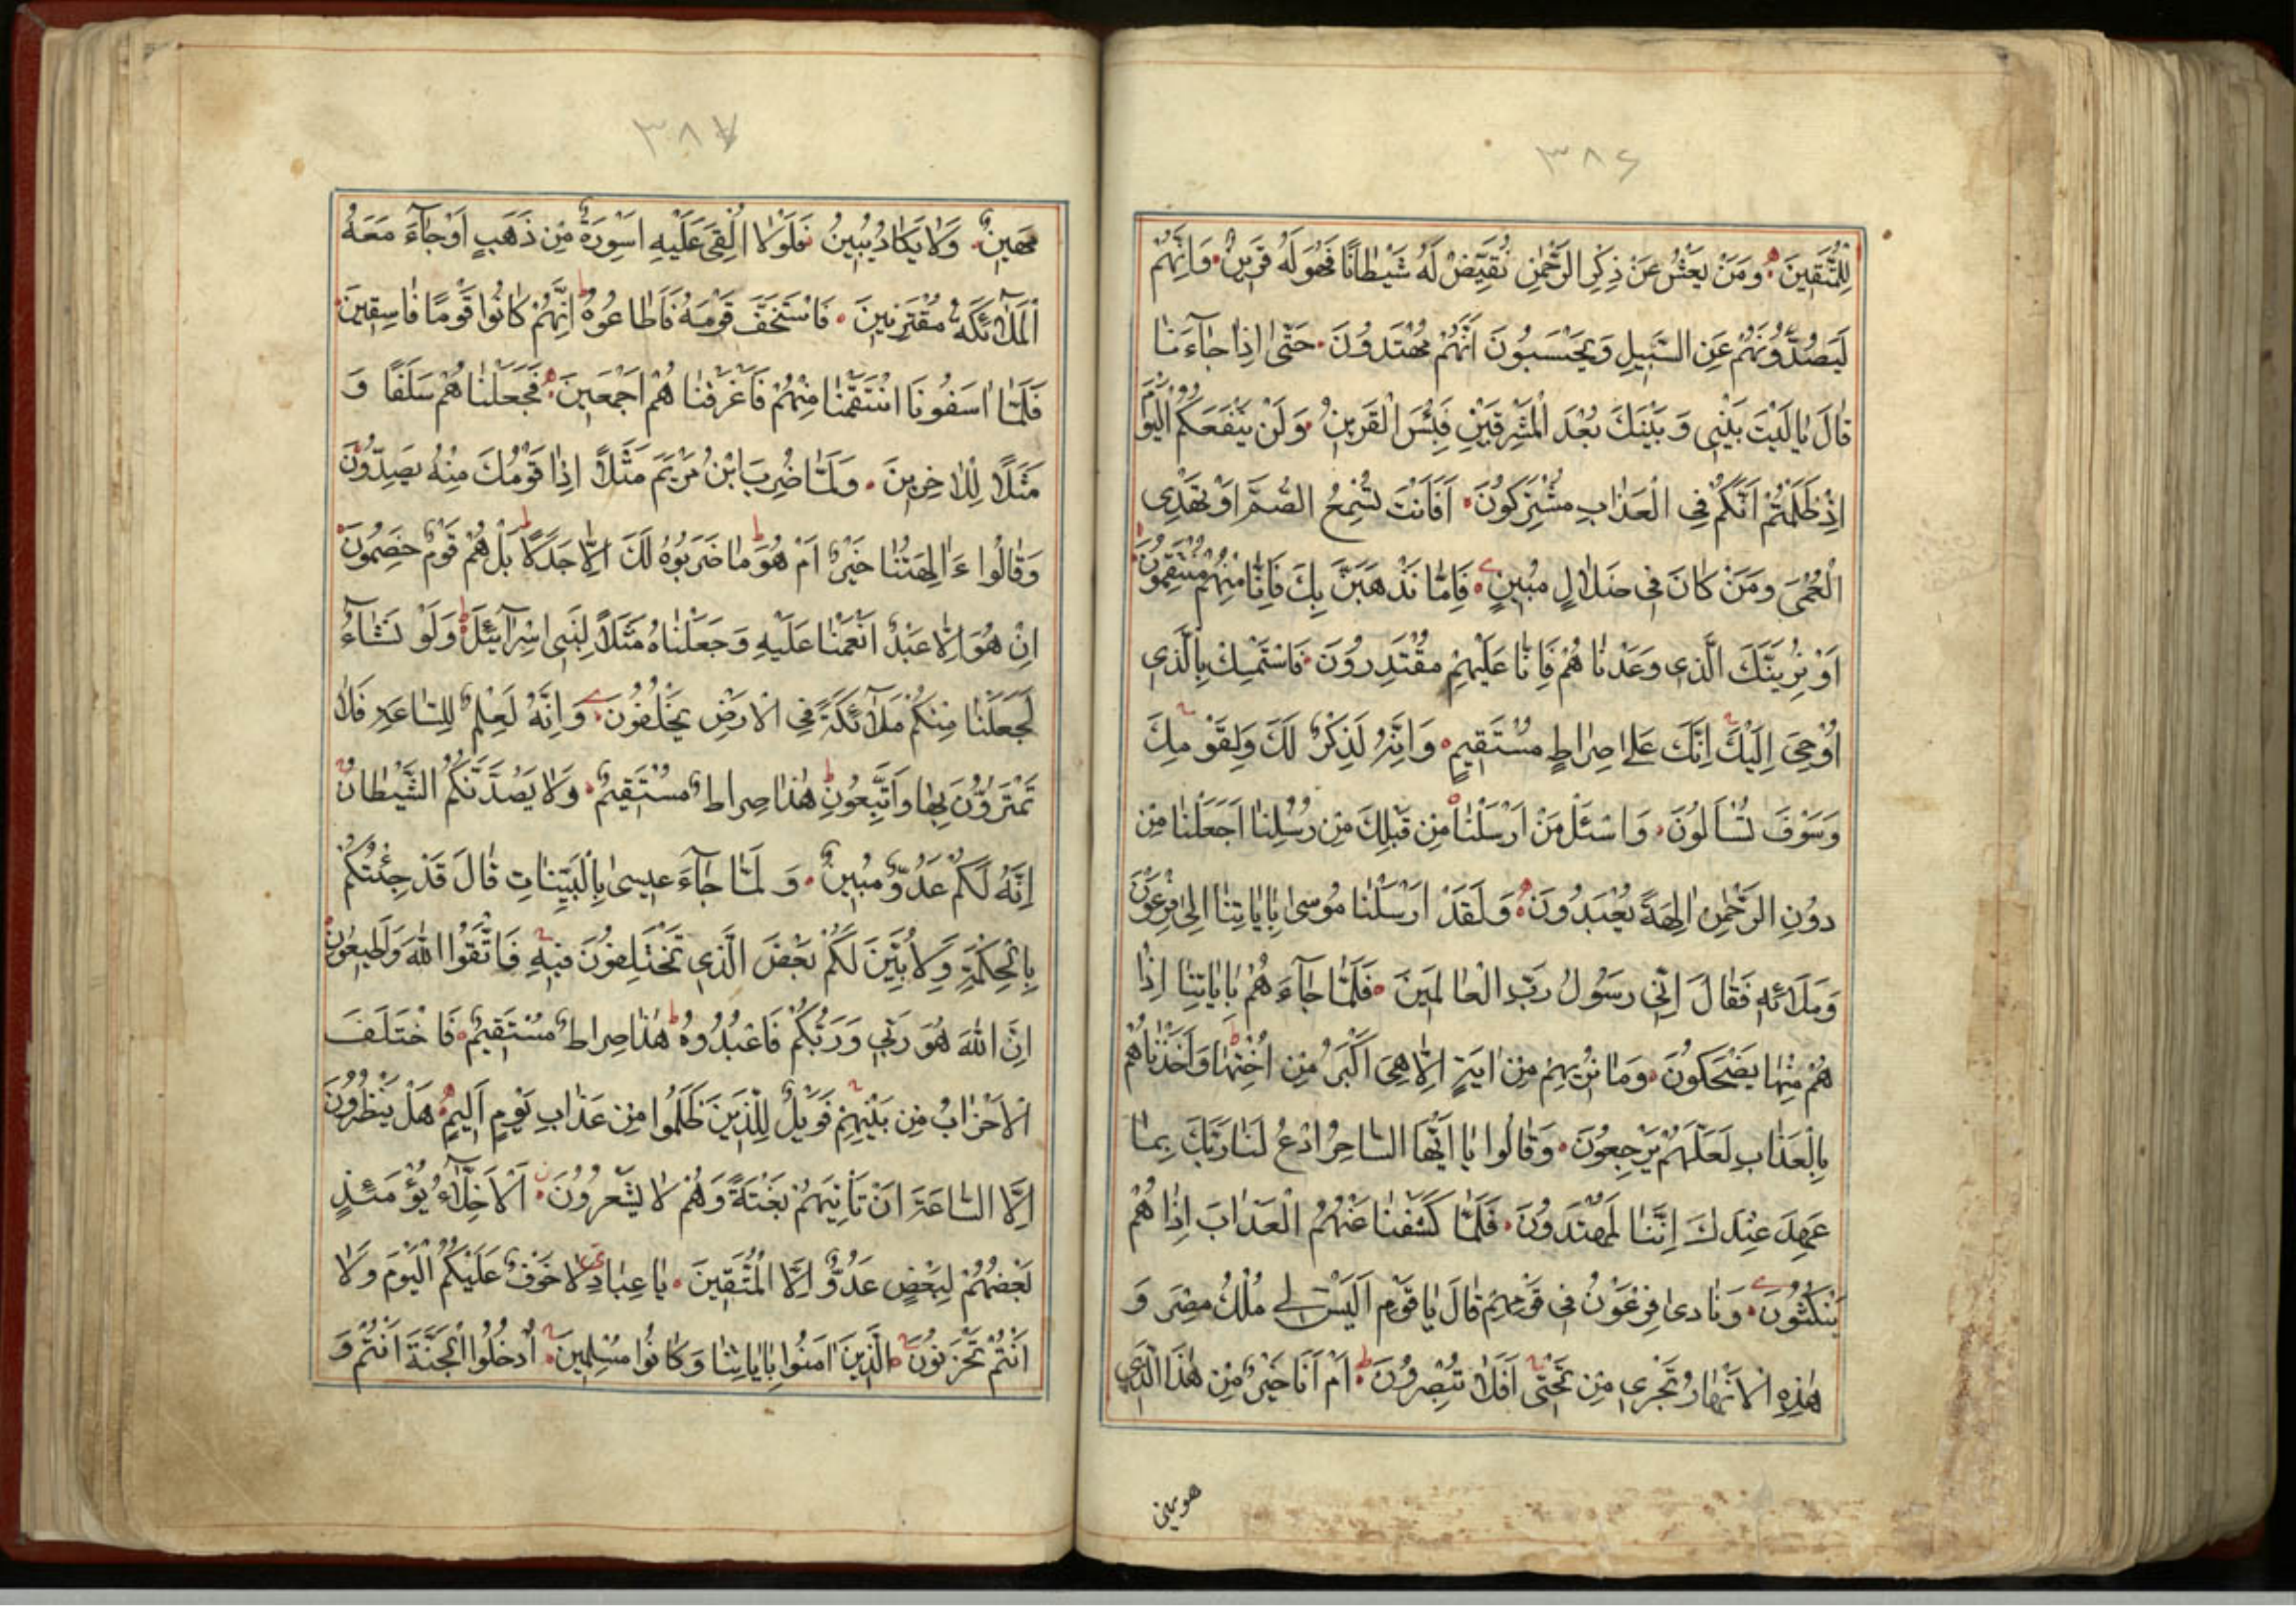 ٣٨٦
لِلْمُتَّقِينَ وَمَنْ يَعْشُ عَنْ ذِكْرِ الرَّحْمٰنِ نُقَيِّضْ لَهُ شَيْطَانًا فَهُوَ لَهُ قَرِينٌ وَاِنَّهُمْ
لَيَصُدُّونَهُمْ عَنِ السَّبِيلِ وَيَحْسَبُونَ اَنَّهُمْ مُهْتَدُونَ حَتّٰى اِذَا جَآءَنَا
قَالَ يَا لَيْتَ بَيْنِى وَبَيْنَكَ بُعْدَ الْمَشْرِقَيْنِ فَبِئْسَ الْقَرِينُ وَلَنْ يَنْفَعَكُمُ الْيَوْمَ
اِذْ ظَلَمْتُمْ اَنَّكُمْ فِى الْعَذَابِ مُشْتَرِكُونَ اَفَاَنْتَ تُسْمِعُ الصُّمَّ اَوْ تَهْدِى
الْعُمْىَ وَمَنْ كَانَ فِى ضَلَالٍ مُبِينٍ فَاِمَّا نَذْهَبَنَّ بِكَ فَاِنَّا مِنْهُمْ مُنْتَقِمُونَ
اَوْ نُرِيَنَّكَ الَّذِى وَعَدْنَا هُمْ فَاِنَّا عَلَيْهِمْ مُقْتَدِرُونَ فَاسْتَمْسِكْ بِالَّذِى
اُوحِىَ اِلَيْكَ اِنَّكَ عَلٰى صِرَاطٍ مُسْتَقِيمٍ وَاِنَّهُ لَذِكْرٌ لَكَ وَلِقَوْمِكَ
وَسَوْفَ تُسْاَلُونَ وَاسْئَلْ مَنْ اَرْسَلْنَا مِنْ قَبْلِكَ مِنْ رُسُلِنَا اَجَعَلْنَا مِنْ
دُونِ الرَّحْمٰنِ اٰلِهَةً يُعْبَدُونَ وَلَقَدْ اَرْسَلْنَا مُوسٰى بِاٰيَاتِنَا اِلٰى فِرْعَوْنَ
وَمَلَائِهِ فَقَالَ اِنِّى رَسُولُ رَبِّ الْعَالَمِينَ فَلَمَّا جَآءَ هُمْ بِاٰيَاتِنَا اِذَا
هُمْ مِنْهَا يَضْحَكُونَ وَمَا نُرِيهِمْ مِنْ اٰيَةٍ اِلَّا هِىَ اَكْبَرُ مِنْ اُخْتِهَا وَاَخَذْنَاهُمْ
بِالْعَذَابِ لَعَلَّهُمْ يَرْجِعُونَ وَقَالُوا يَا اَيُّهَا السَّاحِرُ ادْعُ لَنَا رَبَّكَ بِمَا
عَهِدَ عِنْدَكَ اِنَّنَا لَمُهْتَدُونَ فَلَمَّا كَشَفْنَا عَنْهُمُ الْعَذَابَ اِذَا هُمْ
يَنْكُثُونَ وَنَادٰى فِرْعَوْنُ فِى قَوْمِهِ قَالَ يَا قَوْمِ اَلَيْسَ لِى مُلْكُ مِصْرَ وَ
هٰذِهِ الْاَنْهَارُ تَجْرِى مِنْ تَحْتِى اَفَلَا تُبْصِرُونَ اَمْ اَنَا خَيْرٌ مِنْ هٰذَا الَّذِى
٣٨٧
مَهِينٌ وَلَا يَكَادُ يُبِينُ فَلَوْلَا اُلْقِىَ عَلَيْهِ اَسْوِرَةٌ مِنْ ذَهَبٍ اَوْ جَآءَ مَعَهُ
الْمَلَآئِكَةُ مُقْتَرِنِينَ فَاسْتَخَفَّ قَوْمَهُ فَاَطَاعُوهُ اِنَّهُمْ كَانُوا قَوْمًا فَاسِقِينَ
فَلَمَّا اٰسَفُونَا انْتَقَمْنَا مِنْهُمْ فَاَغْرَقْنَا هُمْ اَجْمَعِينَ فَجَعَلْنَا هُمْ سَلَفًا وَ
مَثَلًا لِلْاٰخِرِينَ وَلَمَّا ضُرِبَ ابْنُ مَرْيَمَ مَثَلًا اِذَا قَوْمُكَ مِنْهُ يَصِدُّونَ
وَقَالُوا ءَاٰلِهَتُنَا خَيْرٌ اَمْ هُوَ مَا ضَرَبُوهُ لَكَ اِلَّا جَدَلًا بَلْ هُمْ قَوْمٌ خَصِمُونَ
اِنْ هُوَ اِلَّا عَبْدٌ اَنْعَمْنَا عَلَيْهِ وَجَعَلْنَاهُ مَثَلًا لِبَنِى اِسْرَآئِيلَ وَلَوْ نَشَآءُ
لَجَعَلْنَا مِنْكُمْ مَلَآئِكَةً فِى الْاَرْضِ يَخْلُفُونَ وَاِنَّهُ لَعِلْمٌ لِلسَّاعَةِ فَلَا
تَمْتَرُنَّ بِهَا وَاتَّبِعُونِ هٰذَا صِرَاطٌ مُسْتَقِيمٌ وَلَا يَصُدَّنَّكُمُ الشَّيْطَانُ
اِنَّهُ لَكُمْ عَدُوٌّ مُبِينٌ وَلَمَّا جَآءَ عِيسٰى بِالْبَيِّنَاتِ قَالَ قَدْ جِئْتُكُمْ
بِالْحِكْمَةِ وَلِاُبَيِّنَ لَكُمْ بَعْضَ الَّذِى تَخْتَلِفُونَ فِيهِ فَاتَّقُوا اللّٰهَ وَاَطِيعُونِ
اِنَّ اللّٰهَ هُوَ رَبِّى وَرَبُّكُمْ فَاعْبُدُوهُ هٰذَا صِرَاطٌ مُسْتَقِيمٌ فَاخْتَلَفَ
الْاَحْزَابُ مِنْ بَيْنِهِمْ فَوَيْلٌ لِلَّذِينَ ظَلَمُوا مِنْ عَذَابِ يَوْمٍ اَلِيمٍ هَلْ يَنْظُرُونَ
اِلَّا السَّاعَةَ اَنْ تَاْتِيَهُمْ بَغْتَةً وَهُمْ لَا يَشْعُرُونَ اَلْاَخِلَّآءُ يَوْمَئِذٍ
بَعْضُهُمْ لِبَعْضٍ عَدُوٌّ اِلَّا الْمُتَّقِينَ يَا عِبَادِ لَا خَوْفٌ عَلَيْكُمُ الْيَوْمَ وَلَا
اَنْتُمْ تَحْزَنُونَ اَلَّذِينَ اٰمَنُوا بِاٰيَاتِنَا وَكَانُوا مُسْلِمِينَ اُدْخُلُوا الْجَنَّةَ اَنْتُمْ وَ